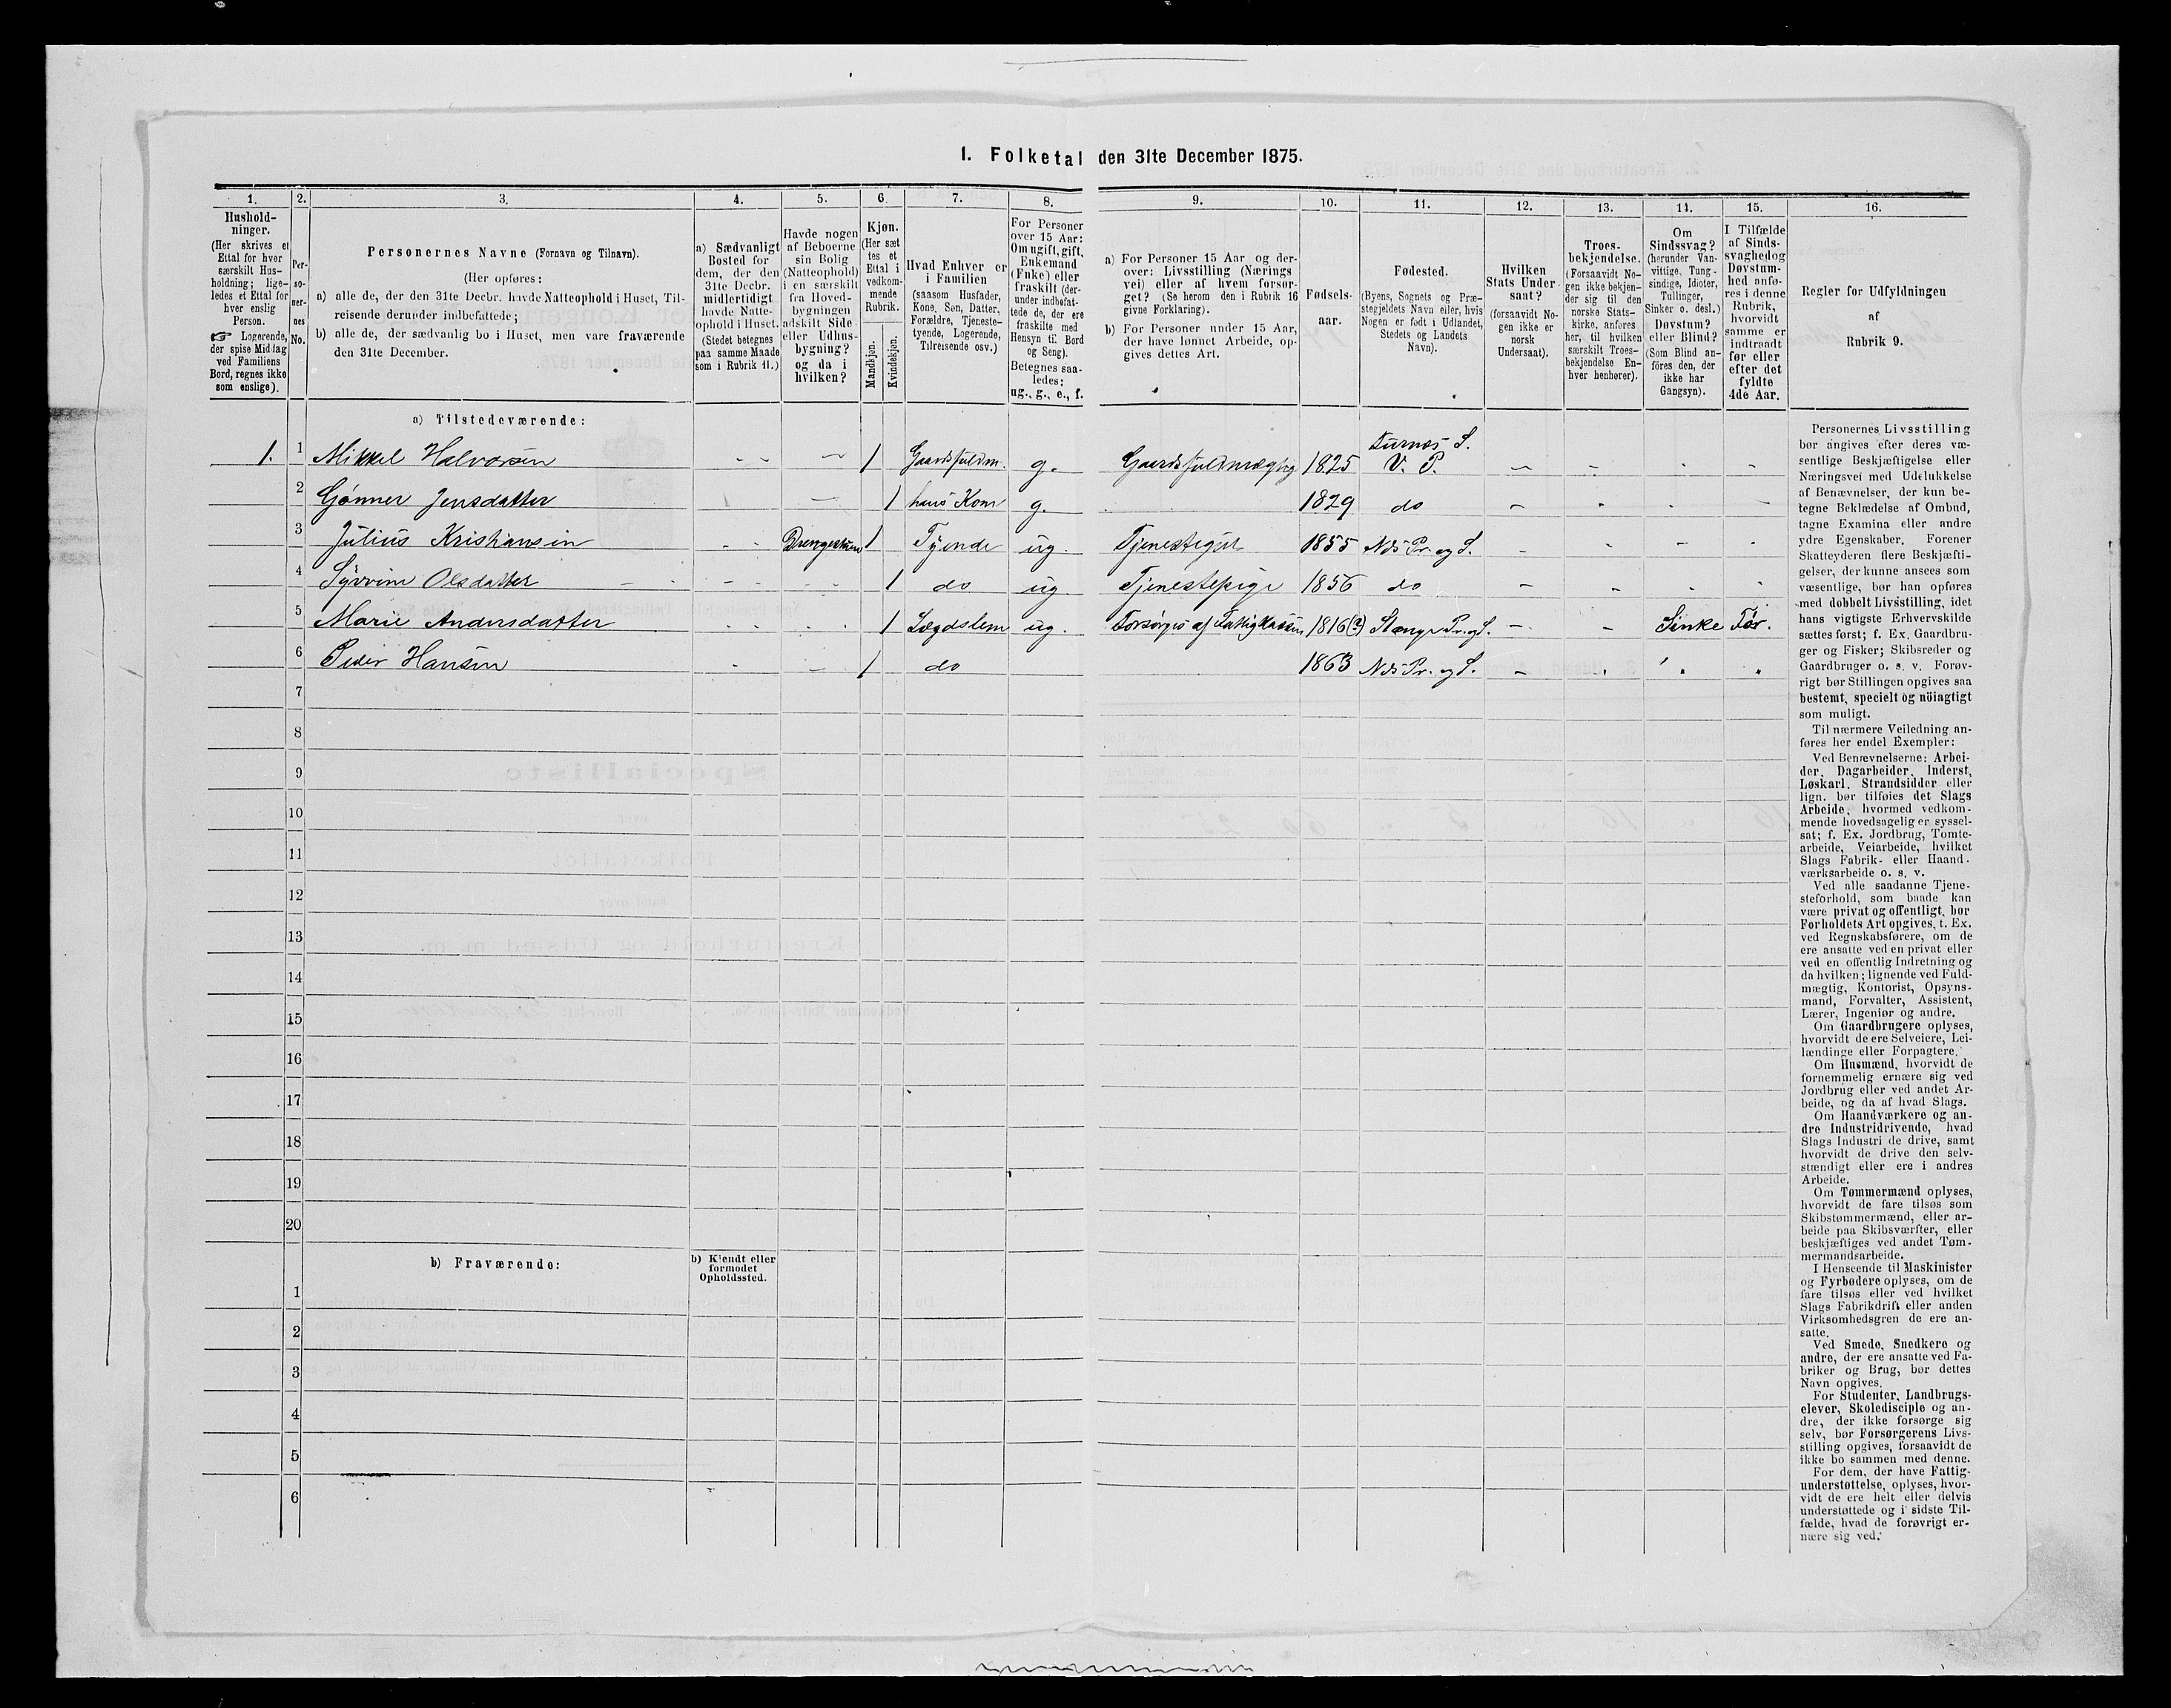 1. Folketal den 31te December 1875.
1. 2. 3. 4. 5. 6. 7. 8. 9. 10. 11. 12. 13. 14. 15. 16.
Hushold-
ninger.
(Her skrives et
Ettal for hver
særskilt Hus-
holdning; lige-
ledes et Ettal for
hver enslig
Person.
☞ Logerende,
der spise Middag
ved Familiens
Bord, regnes ikke
som enslige).
Per-
so-
ner-
nes
No.
Personernes Navne (Fornavn og Tilnavn).
(Her opføres:
a) alle de, der den 31te Decbr. havde Natteophold i Huset, Til-
reisende derunder indbefattede;
b) alle de, der sædvanlig bo i Huset, men vare fraværende
den 31te December.
a) Sædvanligt
Bosted for
dem, der den
31te Decbr.
midlertidigt
havde Natte-
ophold i Huset.
(Stedet betegnes
paa samme Maade
som i Rubrik 11.)
Havde nogen
af Beboerne
sin Bolig
(Natteophold)
i en særskilt
fra Hoved-
bygningen
adskilt Side-
eller Udhus-
bygning?
og da i
hvilken?
Kjøn.
(Her sæt
tes et
Ettal i
vedkom-
mende
Rubrik.
Mandkjøn.
Kvindekjøn.
Hvad Enhver er
i Familien
(saasom Husfader,
Kone, Søn, Datter,
Forældre, Tjeneste-
tyende, Logerende,
Tilreisende osv.)
For Personer
over 15 Aar:
Om ugift, gift,
Enkemand
(Enke) eller
fraskilt (der-
under indbefat-
tede de, der ere
fraskilte med
Hensyn til Bord
og Seng).
Betegnes saa-
ledes:
ug., g., e., f.
a) For Personer 15 Aar og der-
over: Livsstilling (Nærings
vei) eller af hvem forsør-
get? (Se herom den i Rubrik 16
givne Forklaring).
b) For Personer under 15 Aar,
der have lønnet Arbeide, op-
gives dettes Art.
Fødsels-
aar.
Fødested.
(Byens, Sognets og Præ-
stegjeldets Navn eller, hvis
Nogen er født i Udlandet,
Stedets og Landets
Navn).
Hvilken
Stats Under
saat?
(forsaavidt No-
gen ikke er
norsk
Undersaat).
Troes-
bekjendelse.
(Forsaavidt No-
gen ikke bekjen-
der sig til den
norske Stats-
kirke, anføres
her, til hvilken
særskilt Troes-
bekjendelse En-
hver henhører).
Om
Sindssvag?
(herunder Van-
vittige, Tung-
sindige, Idioter,
Tullinger,
Sinker o. desl.)
Døvstum?
eller Blind?
(Som Blind an-
føres den, der
ikke har
Gangsyn).
I Tilfælde
af Sinds-
svaghed og
Døvstum-
hed anfø-
res i denne
Rubrik,
hvorvidt
samme er
indtraadt
før eller
efter det
fyldte
4de Aar.
Regler for Udfyldningen
af
Rubrik 9.
a) Tilstedeværende:
1. 1 Mikkel Halvorsen - - - 1 Gaardsfuldm. g. Gaardsfuldmægtig 1825 Furnes S. V. P. - - - -
2 Gønner Jensdatter - 1 hans Kone g. 1829 do - - - -
3 Julius Kristiansen - - Drengestuen 1 Tyende ug. Tjenestegut 1855 Nds Pr. og S. - - - -
4 Syverine Olsdatter - - - 1 do ug Tjenestepige 1856 do - - - -
5 Marie Andersdatter - - - 1 Lægdslem ug. Forsørges af Fattigkassen 1816(?) Stange Pr. og S. - - Sinke Før.
6 Peder Hansen - - 1 do 1863 Nds Pr. og S. - - - -
7
8
9
10
11
12
13
14
15
16
17
18
19
20
b) Fraværende:
b) Kjendt eller
formodet
Opholdssted.
1
2
3
4
5
6
Personernes Livsstilling
bør angives efter deres væ-
sentlige Beskjæftigelse eller
Næringsvei med Udelukkelse
af Benævnelser, der kun be-
tegne Beklædelse af Ombud,
tagne Examina eller andre
ydre Egenskaber. Forener
Skatteyderen flere Beskjæfti-
gelser, der kunne ansees som
væsentlige, bør han opføres
med dobbelt Livsstilling, idet
hans vigtigste Erhvervskilde
sættes først; f. Ex. Gaardbru-
ger og Fisker; Skibsreder og
Gaardbruger o. s. v. Forøv-
rigt bør Stillingen opgives saa
bestemt, specielt og nöiagtigt
som muligt.
Til nærmere Veiledning an-
føres her endel Exempler:
Ved Benævnelserne: Arbei-
der, Dagarbeider, Inderst,
Løskarl, Strandsidder eller
lign. bør tilføies det Slags
Arbeide, hvormed vedkom-
mende hovedsagelig er syssel-
sat; f. Ex. Jordbrug, Tomte-
arbeide, Veiarbeide, hvilket
Slags Fabrik- eller Haand-
værksarbeide o. s. v.
Ved alle saadanne Tjene-
steforhold, som baade kan
være privat og offentligt, bør
Forholdets Art opgives, t. Ex.
ved Regnskabsførere, om de
ere ansatte ved en privat eller
ved en offentlig Indretning og
da hvilken; lignende ved Fuld-
mægtig, Kontorist, Opsyns-
mand, Forvalter, Assistent,
Lærer, Ingeniør og andre.
Om Gaardbrugere oplyses,
hvorvidt de ere Selveiere, Lei-
lændinge eller Forpagtere.
Om Husmænd, hvorvidt de
fornemmelig ernære sig ved
Jordbrug eller ved andet Ar-
beide, og da af hvad Slags.
Om Haandværkere og an-
dre Industridrivende, hvad
Slags Industri de drive, samt
hvorvidt de drive den selv-
stændigt eller ere i andres
Arbeide.
Om Tømmermænd oplyses,
hvorvidt de fare tilsøs som
Skibstømmermænd, eller ar-
beide paa Skibsværfter, eller
beskjæftiges ved andet Tøm-
mermandsarbeide.
I Henseende til Maskinister
og Fyrbødere oplyses, om de
fare tilsøs eller ved hvilket
Slags Fabrikdrift eller anden
Virksomhedsgren de ere an-
satte.
Ved Smede, Snedkere og
andre, der ere ansatte ved Fa-
briker og Brug, bør dettes
Navn opgives.
For Studenter, Landbrugs-
elever, Skoledisciple og an-
dre, der ikke forsørge sig
selv, bør Forsørgerens Livs-
stilling opgives, forsaavidt de
ikke bo sammen med denne.
For dem, der have Fattig-
understøttelse, oplyses, hvor-
vidt de ere helt eller delvis
understøttede og i sidste Til-
fælde, hvad de forøvrigt er-
nære sig ved.